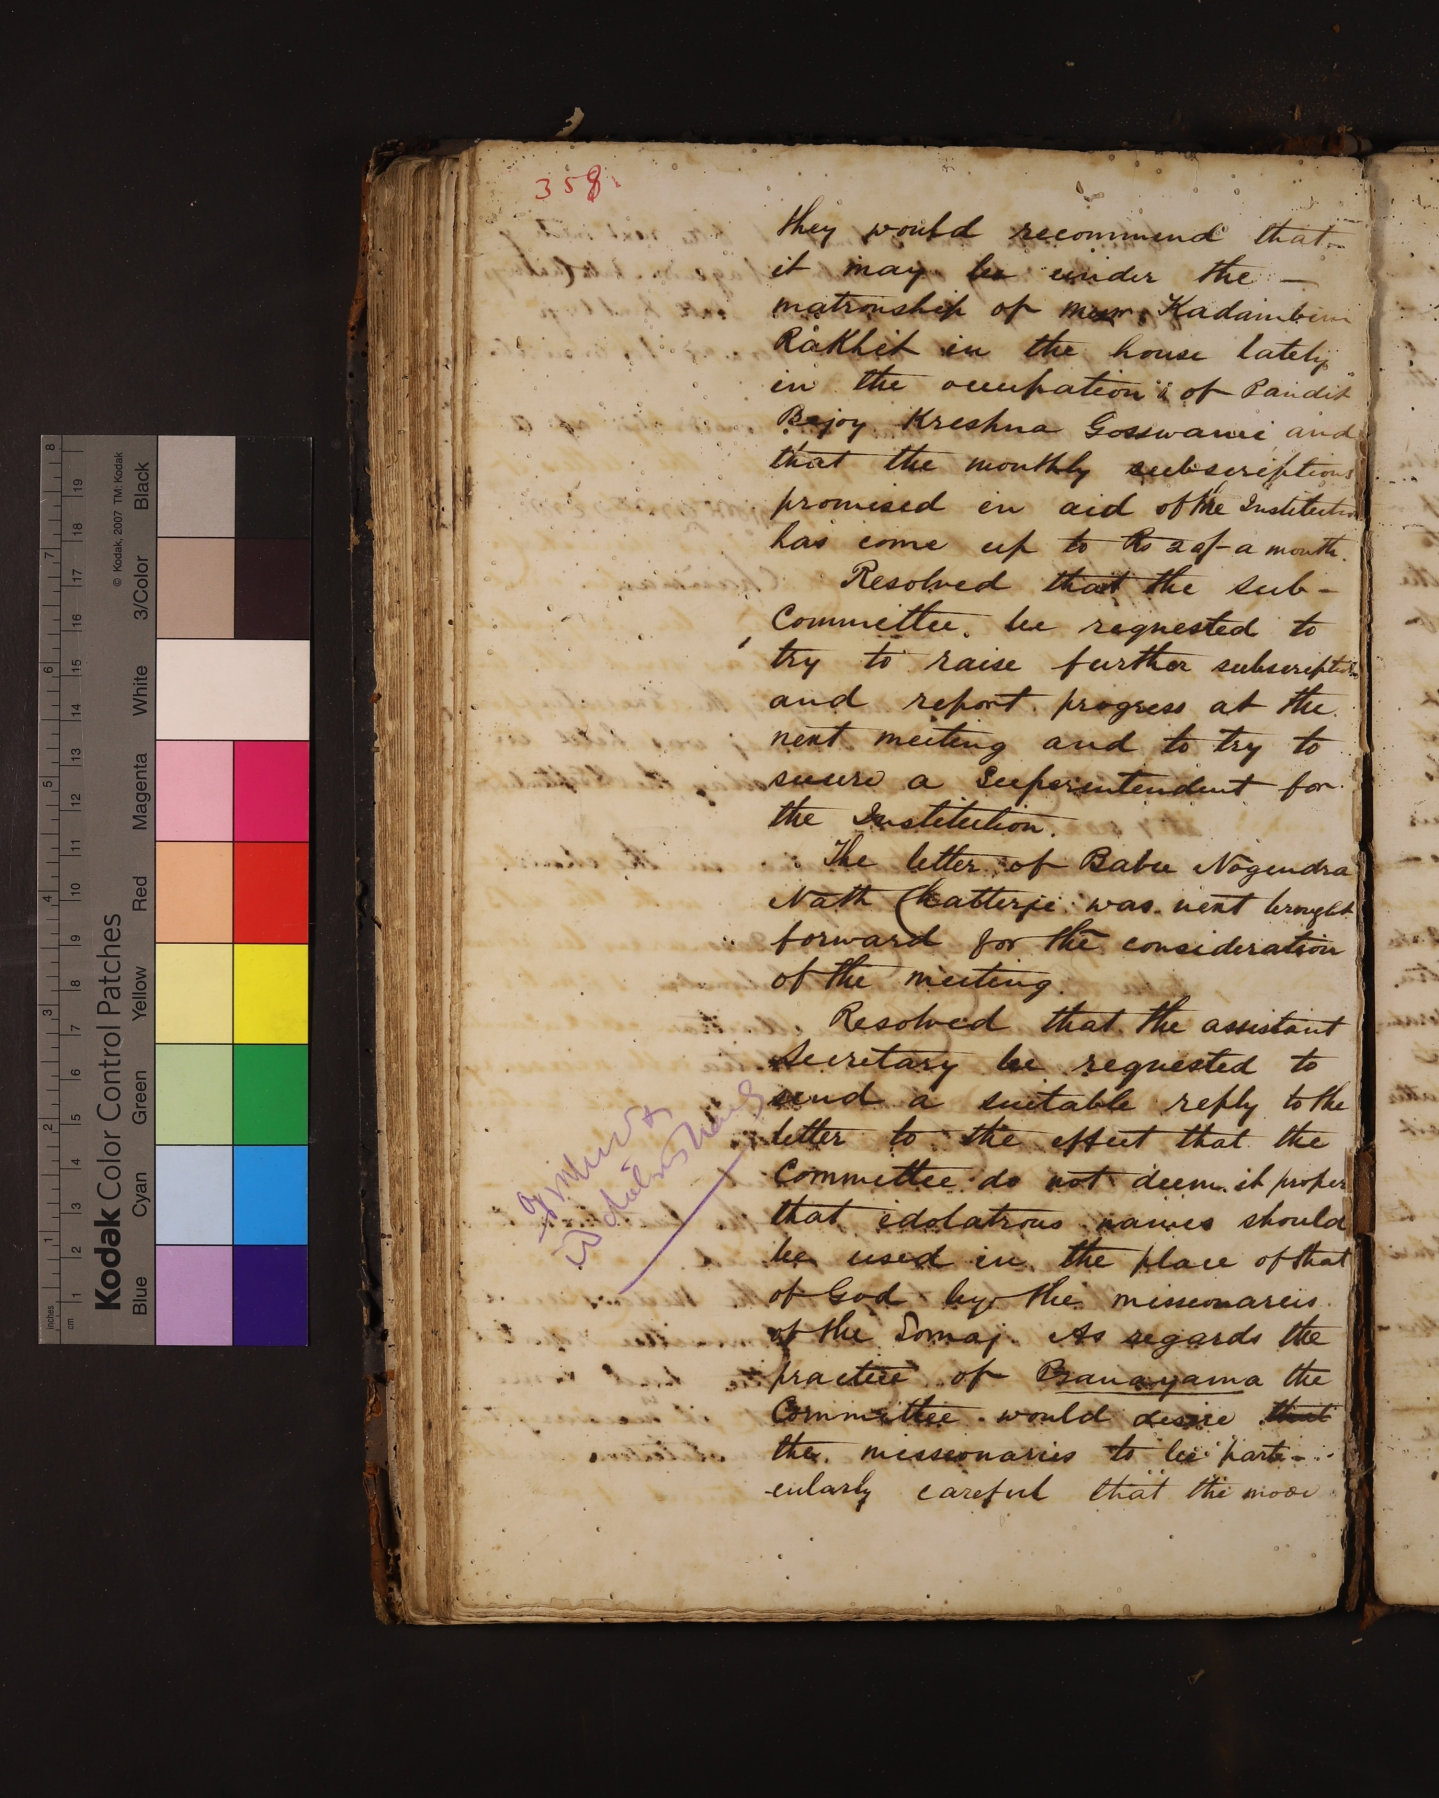 358
they would recommend that
it may be under the —
matronship of Kadambini
Rakhit in the house lately
in the occupation of Pandit
Bejoy Kreshna Gosswami and
that the monthly subscriptions
promised in aid of the Institution
has come up to Rs a month.
Resolved that the sub-
Committee be requested to
try to raise further subscription
and report progress at the
next meeting and to try to
secure a Superintendent for
the Institution.
The letter of Babu Nogendra
Nath Chatterje was next brought
forward for the consideration
of the meeting.
Resolved that the assistant
Secretary be requested to
send a suitable reply to the
letter to the effect that the
Committee do not deem it proper
that idolatrous names should
be used in the place of that
of God by the missionareis
of the Somaj. As regards the
practice of Pranayama the
Committee would desire that
the missionaries to be parti-
cularly careful that the
Kodak Color Control Patches
© Kodak, 2007 TM: Kodak
Blue Cyan Green Yellow Red Magenta White 3/Color Black
inches 1 2 3 4 5 6 7 8
cm 1 2 3 4 5 6 7 8 9 10 11 12 13 14 15 16 17 18 19